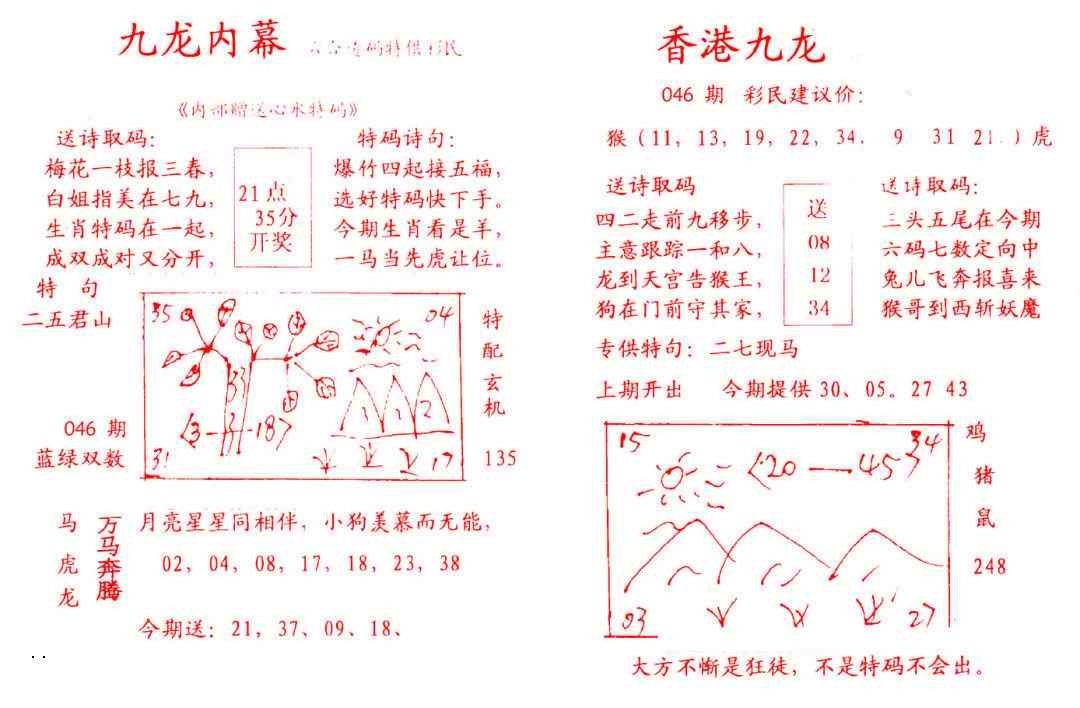 九龙内幕
《内部赠送心水特码》
送诗取码：
梅花一枝报三春，
白姐指美在七九，
生肖特码在一起，
成双成对又分开，
21点
35分
开奖
特码诗句：
爆竹四起接五福，
选好特码快下手。
今期生肖看是羊，
一马当先虎让位。
特 句
二五君山
046 期
蓝绿双数
35
04
33
1 1 2
31
17
特
配
玄
机
135
马
虎
龙
万马奔腾
月亮星星同相伴，小狗羡慕而无能，
02，04，08，17，18，23，38
今期送：21，37、09、18、
香港九龙
046 期 彩民建议价：
猴（11，13，19，22，34． 9 31 21．）虎
送诗取码
四二走前九移步，
主意跟踪一和八，
龙到天宫告猴王，
狗在门前守其家，
送
08
12
34
送诗取码：
三头五尾在今期
六码七数定向中
兔儿飞奔报喜来
猴哥到西斩妖魔
专供特句：二七现马
上期开出 今期提供 30、05。27 43
15
34
20—45
03
27
鸡
猪
鼠
248
大方不惭是狂徒，不是特码不会出。